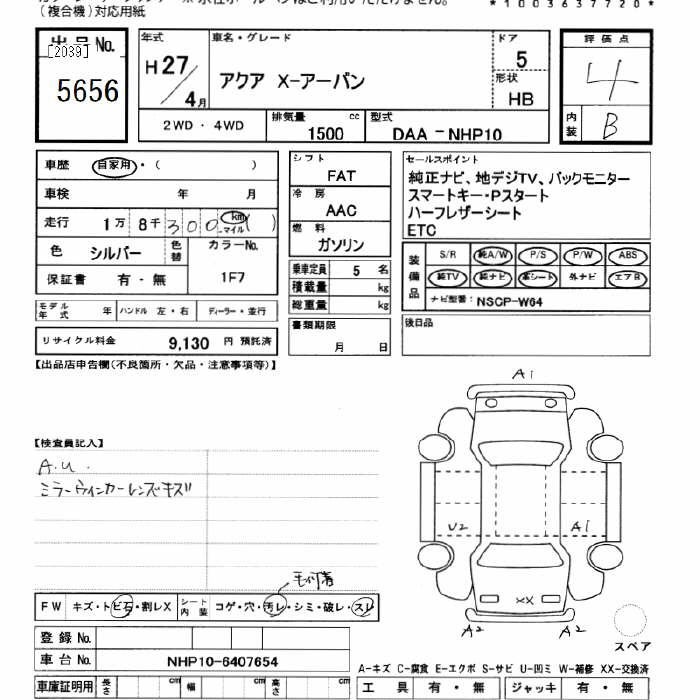 (複合機)対応用紙
*1003637720*
出品No.
[2039]
5656
年式
H27/4月
車名・グレード
アクア X-アーバン
ドア
5
形状
HB
2WD・4WD
排気量 cc
1500
型式
DAA-NHP10
評価点
4
内装
B
車歴 自家用・( )
車検 年 月
走行 1万 8千 300 km マイル ( )
色 シルバー 色替 カラーNo.
保証書 有・無 1F7
モデル年式 年 ハンドル 左・右 ディーラー・並行
リサイクル料金 9,130 円 預託済
シフト
FAT
冷房
AAC
燃料
ガソリン
乗車定員 5 名
積載量 kg
総重量 kg
書類期限
月 日
セールスポイント
純正ナビ、地デジTV、バックモニター
スマートキー・Pスタート
ハーフレザーシート
ETC
装備品
S/R 純A/W P/S P/W ABS
純TV 純ナビ 革シート 外ナビ エアB
ナビ型番: NSCP-W64
後日品
【出品店申告欄(不良箇所・欠品・注意事項等)】
【検査員記入】
A.U.
ミラーウィンカーレンズキズ
A1
U2 A1
XX
A2 A2
スペア
毛付着
FW キズ・トビ石・割レX シート内装 コゲ・穴・汚レ・シミ・破レ・スレ
登録No.
車台No. NHP10-6407654
車庫証明用 長さ cm 幅 cm 高さ cm
A-キズ C-腐食 E-エクボ S-サビ U-凹ミ W-補修 XX-交換済
工具 有・無 ジャッキ 有・無